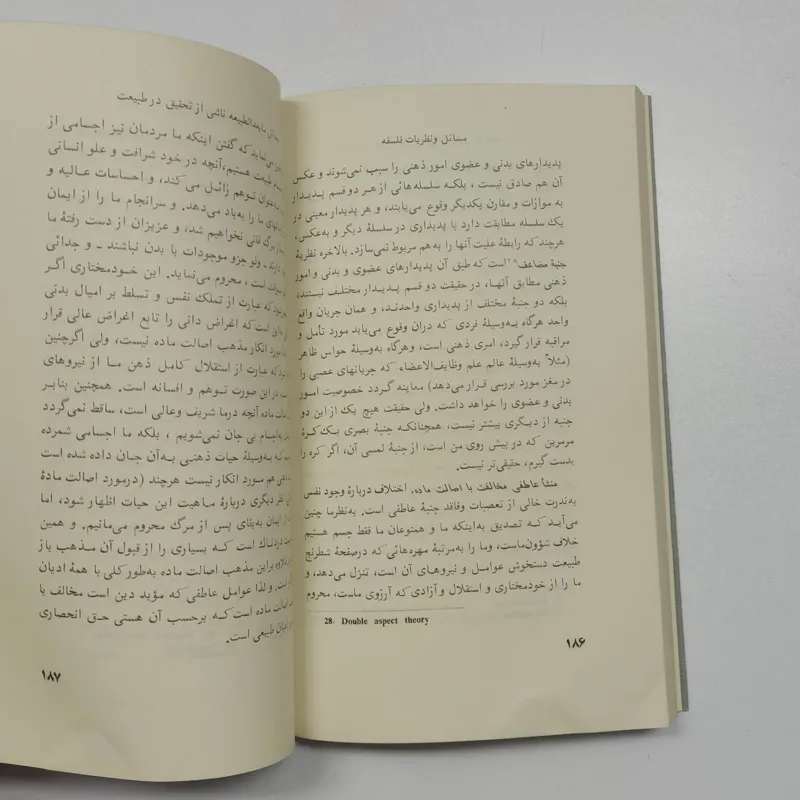 مسائل ونظریات فلسفه
پدیدارهای بدنی و عضوی امور ذهنی را سبب نمی‌شوند و عکس
آن هم صادق نیست ، بلکه سلسله‌هائی از هر دو قسم پدیدار
به موازات و مقارن یکدیگر وقوع می‌یابند، و هر پدیدار معینی در
یک سلسله مطابقت دارد با پدیداری در سلسلهٔ دیگر و به‌عکس،
هرچند که رابطهٔ علیت آنها را به‌هم مربوط نمی‌سازد. بالاخره نظریهٔ
جنبهٔ مضاعف۲۸ است که طبق آن پدیدارهای عضوی و بدنی و امور
ذهنی مطابق آنها، در حقیقت دو قسم پدیدار مختلف نیستند،
بلکه دو جنبهٔ مختلف از پدیداری واحدند، و همان جریان واقع
واحد هرگاه به‌وسیلهٔ فردی که دران وقوع می‌یابد مورد تأمل و
مراقبه قرار گیرد، امری ذهنی است، وهرگاه به‌وسیلهٔ حواس ظاهر
(مثلاً به‌وسیلهٔ عالم علم وظایف‌الاعضاء که جریانهای عصبی را
در مغز مورد بررسی قرار می‌دهد) معاینه گردد خصوصیت امور
بدنی و عضوی را خواهد داشت. ولی حقیقت هیچ یک از این دو
جنبه از دیگری بیشتر نیست، همچنانکه جنبهٔ بصری یک کرهٔ
مرمرین که در پیش روی من است، از جنبهٔ لمسی آن، اگر کره را
بدست گیرم، حقیقی‌تر نیست.
منشأ عاطفی مخالفت با اصالت ماده. اختلاف دربارهٔ وجود نفس
به‌ندرت خالی از تعصبات وفاقد جنبهٔ عاطفی است. به‌نظرما چنین
می‌آید که تصدیق به‌اینکه ما و همنوعان ما فقط جسم هستیم
خلاف شؤون‌ماست، وما را به‌مرتبهٔ مهره‌هائی که درصفحهٔ شطرنج
طبیعت دستخوش عوامل و نیروهای آن است، تنزل می‌دهد، و
ما را از خودمختاری و استقلال و آزادی که آرزوی ماست، محروم
28. Double aspect theory
۱۸۶
مابعدالطبیعه ناشی از تحقیق در طبیعت
می‌نماید که گفتن اینکه ما مردمان نیز اجسامی از
طبیعت هستیم، آنچه در خود شرافت و علو انسانی
توهم زائل می‌کند، و احساسات عالیه و
ما را به‌باد می‌دهد. و سرانجام ما را از ایمان
مرگ فانی نخواهیم شد، و عزیزان از دست رفتهٔ ما
ولو جزو موجودات با بدن نباشند ـ و جدائی
است ، محروم می‌نماید. این خودمختاری اگر
که عبارت از تملک نفس و تسلط بر امیال بدنی
است که اغراض دانی را تابع اغراض عالی قرار
مورد انکار مذهب اصالت ماده نیست، ولی اگرچنین
که عبارت از استقلال کامل ذهن ما از نیروهای
در این صورت توهم و افسانه است. همچنین بنابر
ماده آنچه درما شریف وعالی است، ساقط نمی‌گردد
بی جان نمی‌شویم ، بلکه ما اجسامی شمرده
که به‌وسیلهٔ حیات ذهنی به‌آن جان داده شده است
هم مورد انکار نیست هرچند (درمورد اصالت مادهٔ
نظر دیگری دربارهٔ ماهیت این حیات اظهار شود، اما
از ایمان به‌بقای پس از مرگ محروم می‌مانیم. و همین
دردناک است که بسیاری را از قبول آن مذهب باز
براین مذهب اصالت ماده به‌طور کلی با همهٔ ادیان
ولذا عوامل عاطفی که مؤید دین است مخالف با
اصالت ماده است که برحسب آن هستی حق انحصاری
اعیان طبیعی است.
۱۸۷